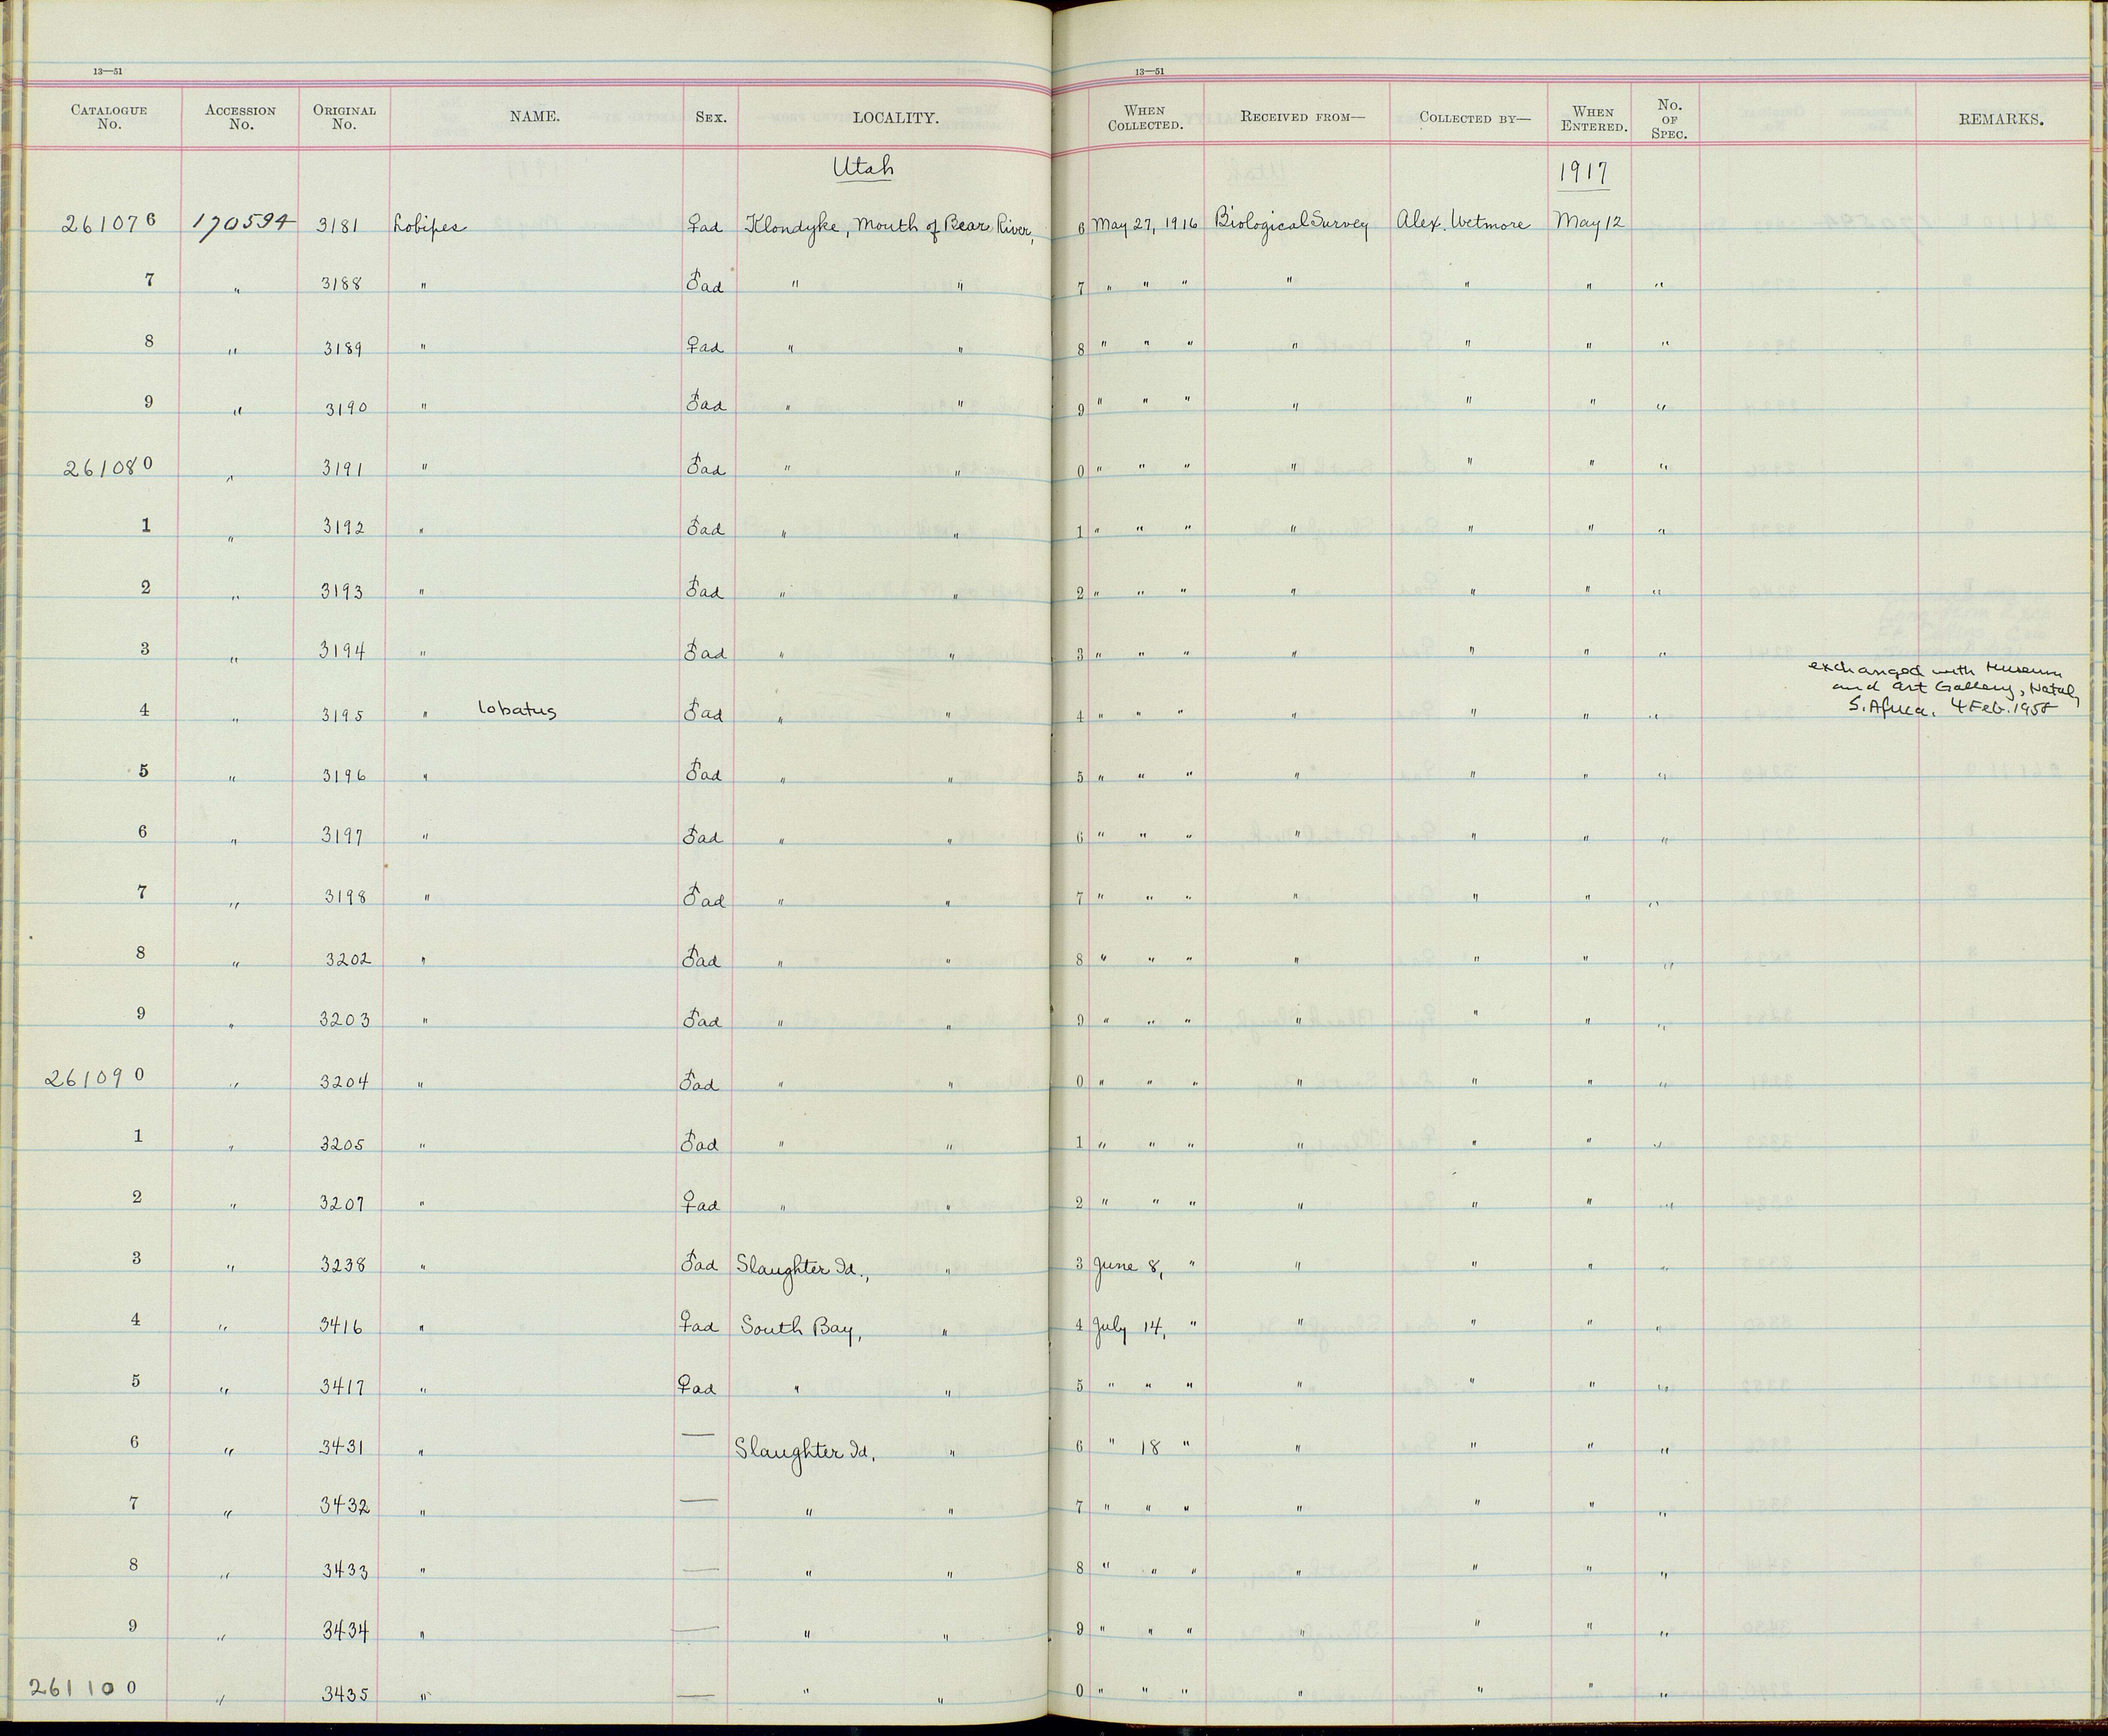 13—51 13—51
CATALOGUE No. ACCESSION No. ORIGINAL No. NAME. SEX. LOCALITY. WHEN COLLECTED. RECEIVED FROM— COLLECTED BY— WHEN ENTERED. No. OF SPEC. REMARKS.
Utah 1917
261076 170594 3181 Lobipes ♀ad Klondyke, Mouth of Bear River, 6 May 27, 1916 Biological Survey Alex. Wetmore May 12
7 " 3188 " ♂ad " " 7 " " " " " " "
8 " 3189 " ♀ad " " 8 " " " " " " "
9 " 3190 " ♂ad " " 9 " " " " " " "
261080 " 3191 " ♂ad " " 0 " " " " " " "
1 " 3192 " ♂ad " " 1 " " " " " " "
2 " 3193 " ♂ad " " 2 " " " " " " "
3 " 3194 " ♂ad " " 3 " " " " " " "
4 " 3195 " lobatus ♂ad " " 4 " " " " " " " exchanged with Museum
and Art Gallery, Natal,
S. Africa. 4 Feb. 1958
5 " 3196 " ♂ad " " 5 " " " " " " "
6 " 3197 " ♂ad " " 6 " " " " " " "
7 " 3198 " ♂ad " " 7 " " " " " " "
8 " 3202 " ♂ad " " 8 " " " " " " "
9 " 3203 " ♂ad " " 9 " " " " " " "
261090 " 3204 " ♂ad " " 0 " " " " " " "
1 " 3205 " ♂ad " " 1 " " " " " " "
2 " 3207 " ♀ad " " 2 " " " " " " "
3 " 3238 " ♂ad Slaughter Id., " 3 June 8, " " " " "
4 " 3416 " ♀ad South Bay, " 4 July 14, " " " " "
5 " 3417 " ♀ad " " 5 " " " " " " "
6 " 3431 " — Slaughter Id. " 6 " 18 " " " " "
7 " 3432 " — " " 7 " " " " " " "
8 " 3433 " — " " 8 " " " " " " "
9 " 3434 " — " " 9 " " " " " " "
261100 " 3435 " — " " 0 " " " " " " "